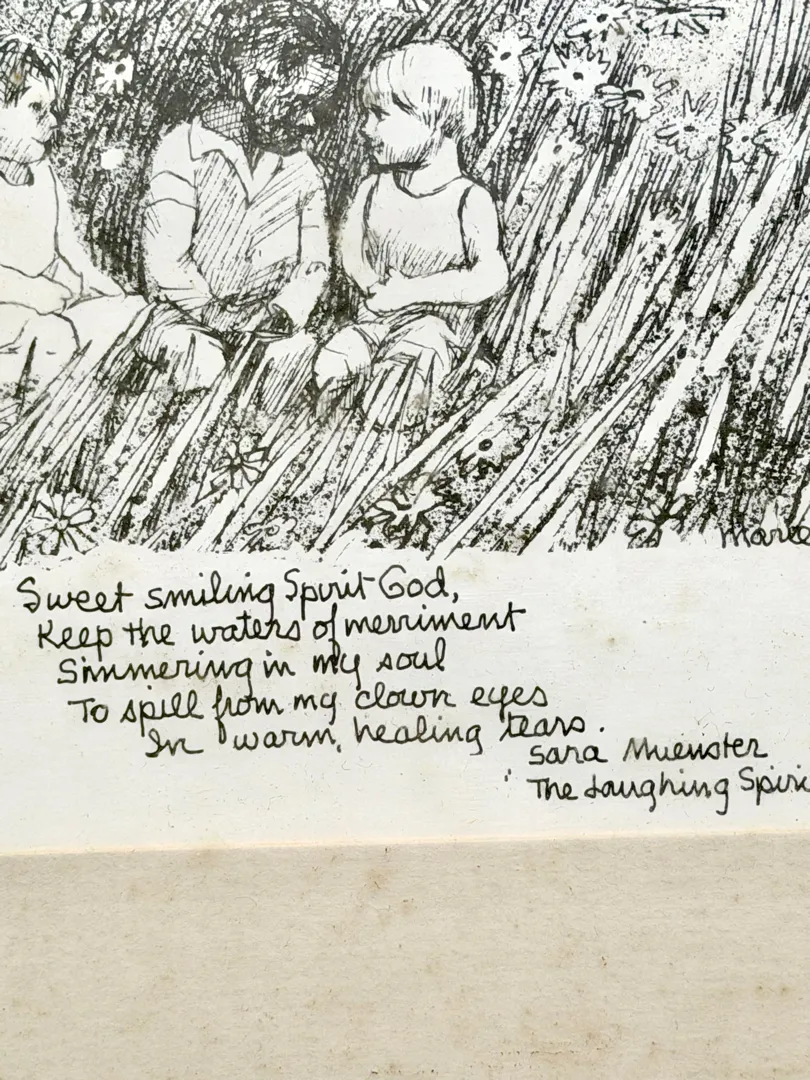 Marce
Sweet smiling Spirit God,
Keep the waters of merriment
Simmering in my soul
To spill from my clown eyes
In warm, healing tears.
Sara Muenster
The Laughing Spiri